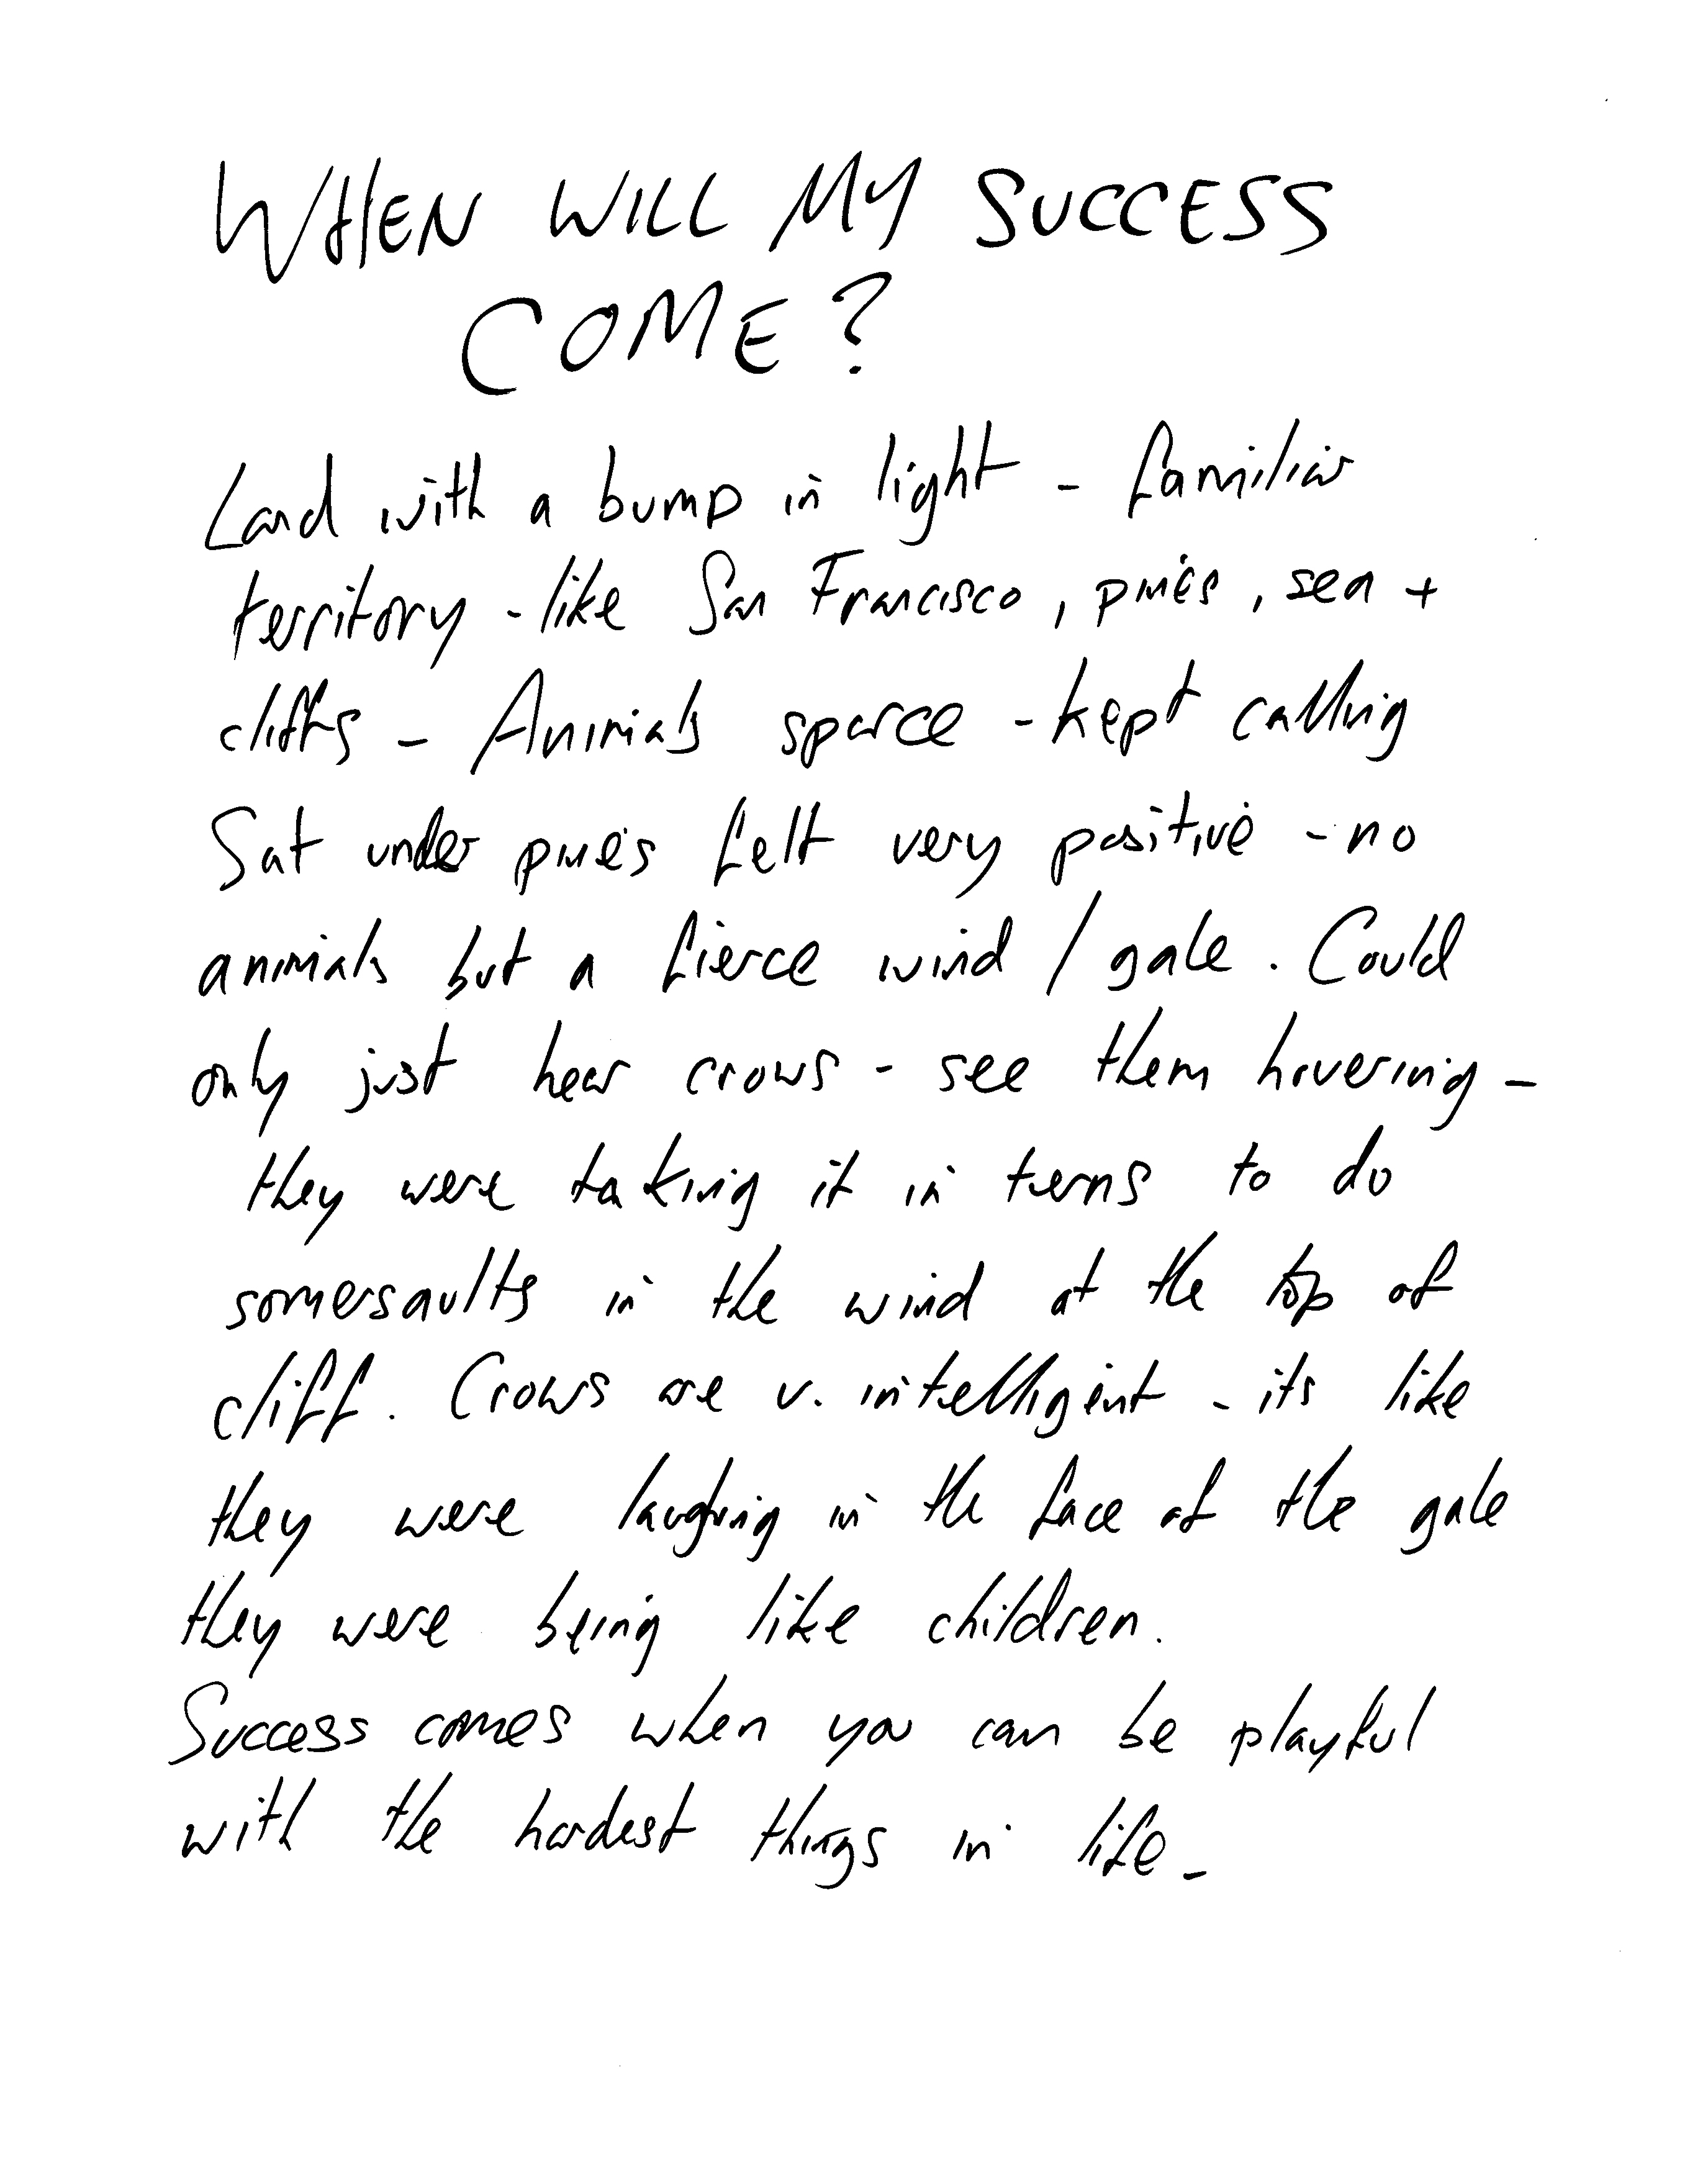 WHEN WILL MY SUCCESS
COME?
Land with a bump in light - familiar
territory - like San Francisco, pines, sea +
cliffs - Animals sparce - kept calling
Sat under pines felt very positive - no
animals but a fierce wind / gale. Could
only just hear crows - see them hovering -
they were taking it in terns to do
somersaults in the wind at the top of
cliff. Crows are v. intelligent - its like
they were laughing in the face of the gale
they were being like children.
Success comes when you can be playful
with the hardest things in life -